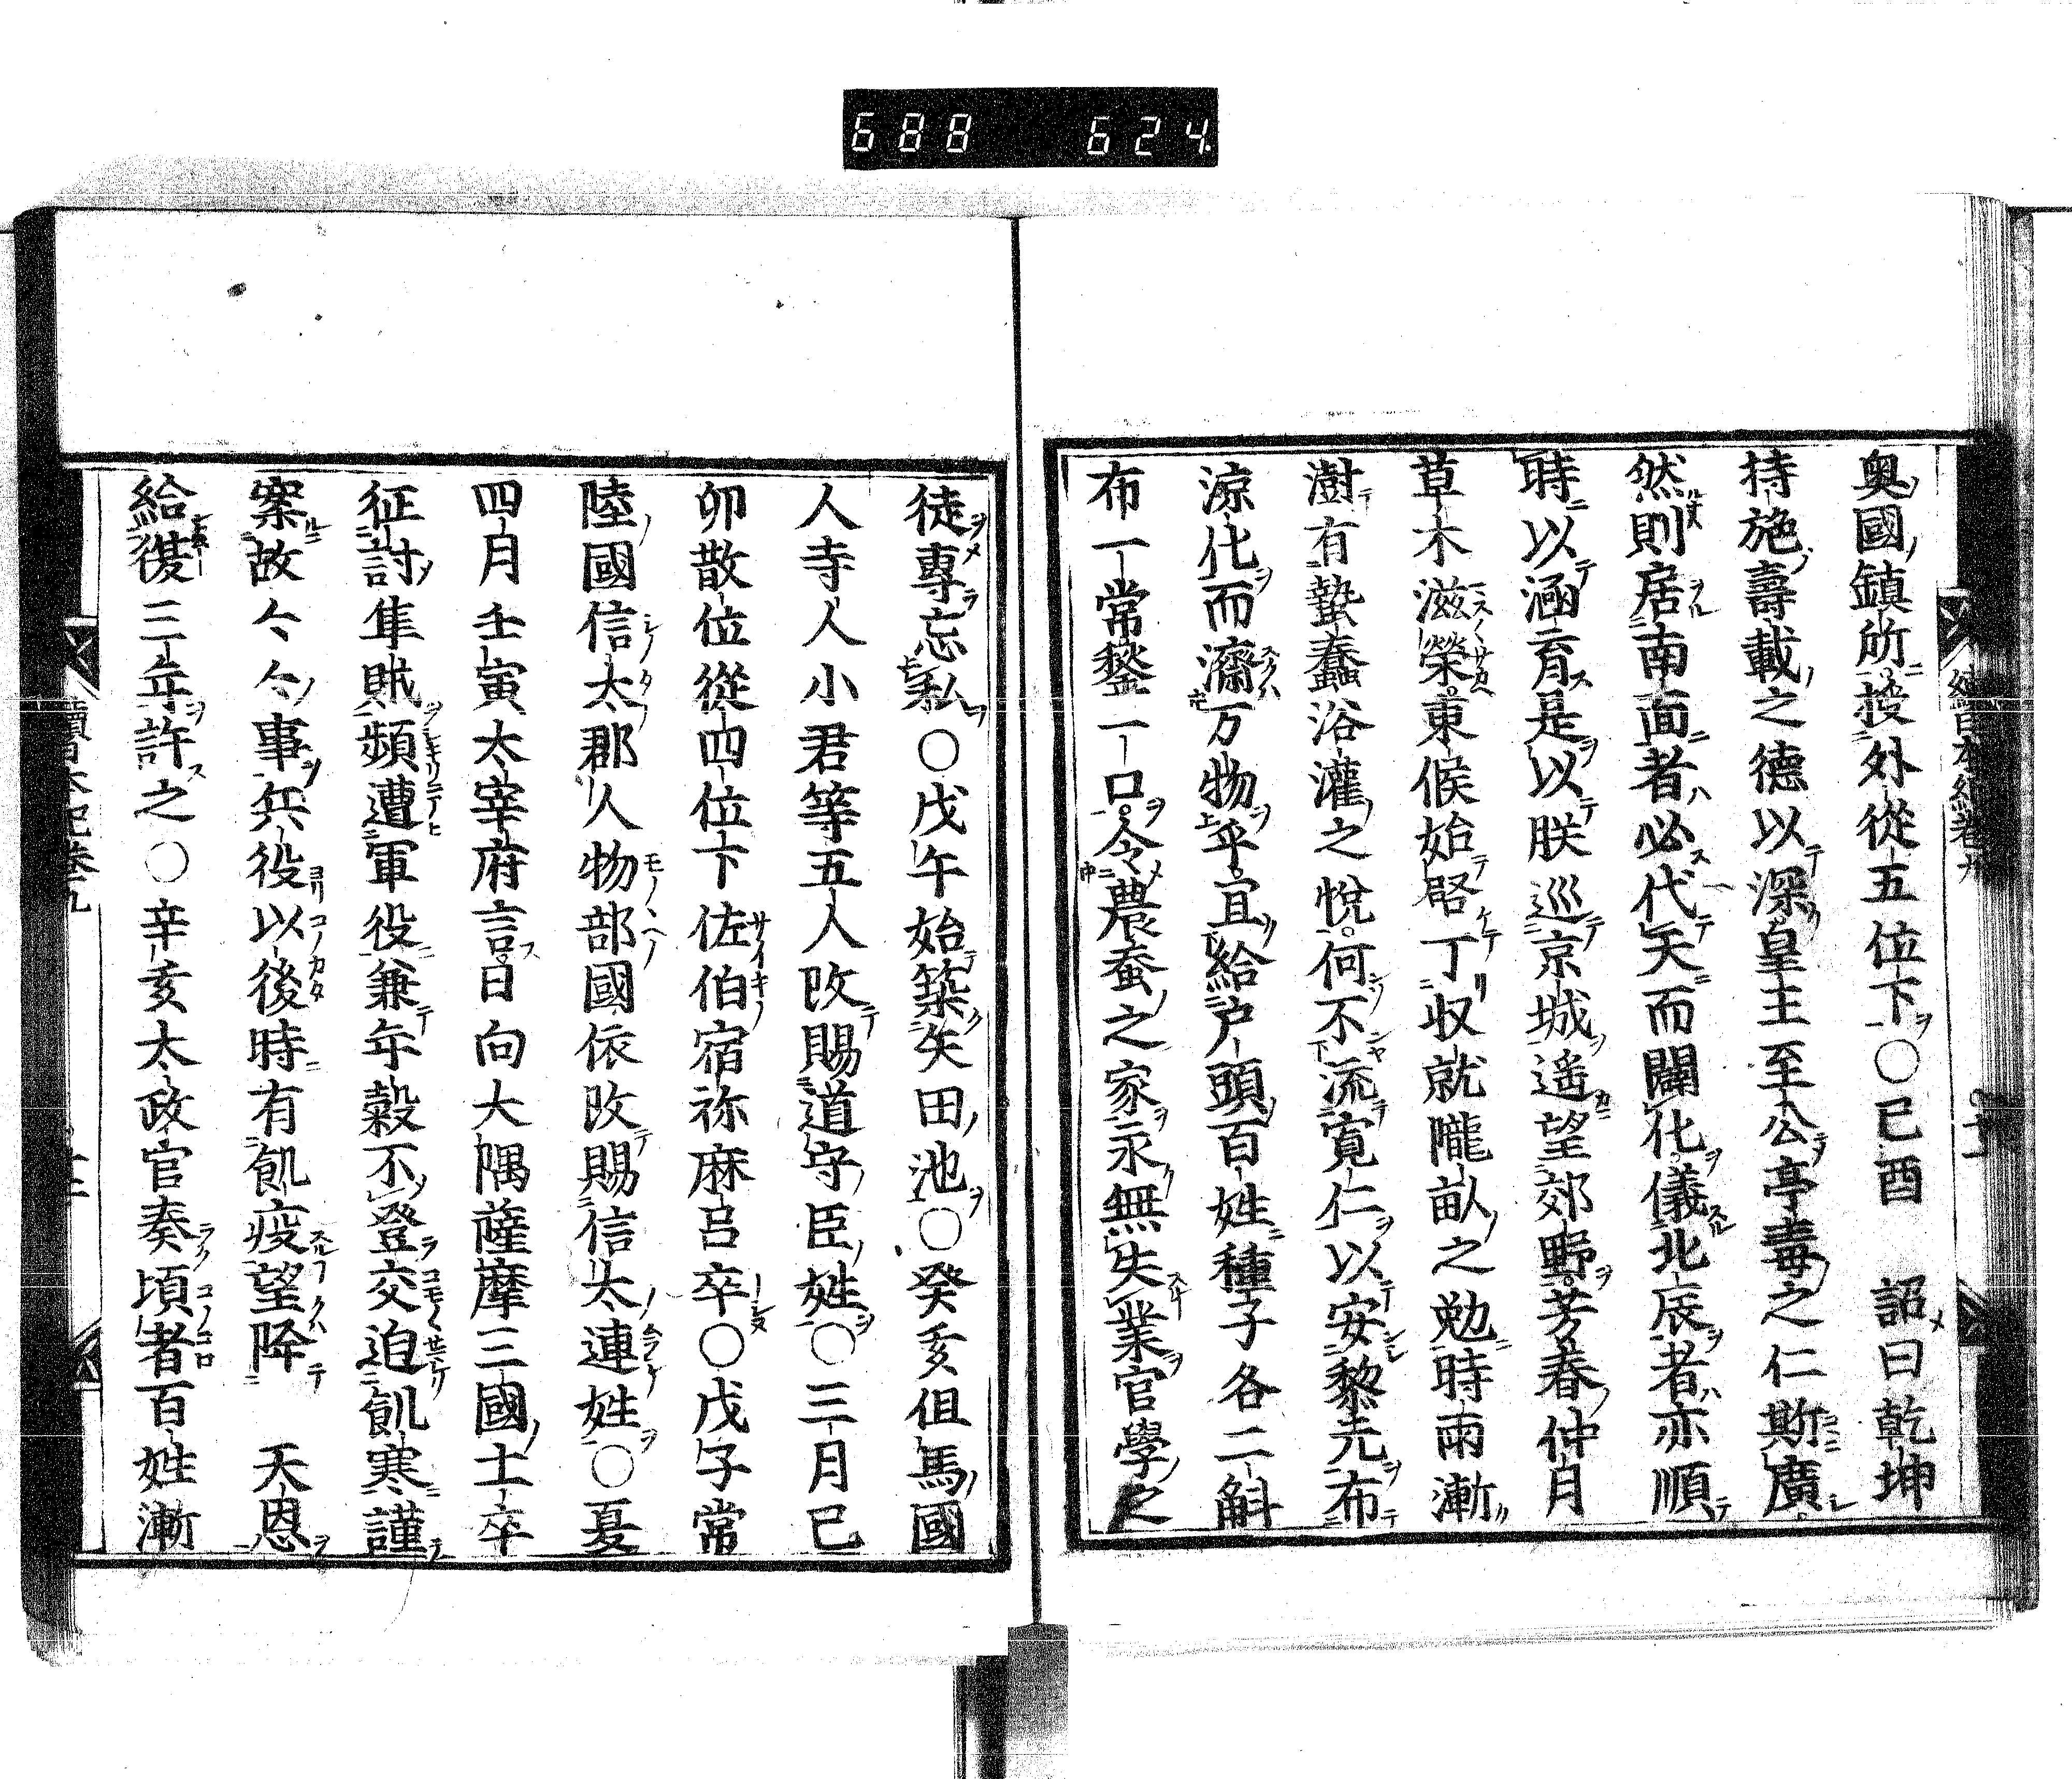 688 624
奥國鎮所授外從五位下○己酉 詔曰乾坤
持施壽載之德以深皇王至公亭毒之仁斯廣
然則居南面者必代天而闢化儀北辰者亦順
時以涵育是以朕巡京城遥望郊野芳春仲月
草木滋榮東候始啓丁収就隴畝之勉時雨漸
澍有蟄蠢浴灌之悅何不流寛仁以安黎元布
淳化而濟万物乎宜給户頭百姓種子各二斛
布一常鍫一口令農蚕之家永無失業官學之
徒專忘私○戊午始築矢田池○癸亥但馬國
人寺人小君等五人改賜道守臣姓○三月己
卯散位從四位下佐伯宿祢麻呂卒○戊子常
陸國信太郡人物部國依改賜信太連姓○夏
四月壬寅太宰府言日向大隅薩摩三國士卒
征討隼賊頻遭軍役兼年穀不登交迫飢寒謹
案故今今事兵役以後時有飢疫望降 天恩
給復三年許之○辛亥太政官奏頃者百姓漸